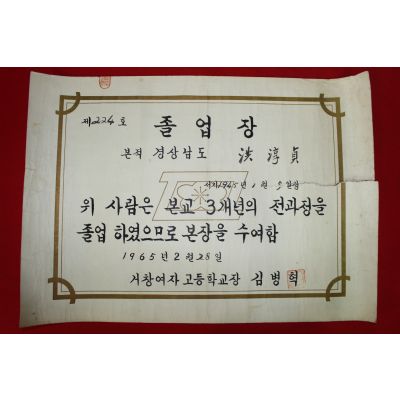 제224호
졸업장
본적 경상남도 洪淳貞
서기1945년 1월 5일생
위 사람은 본교 3개년의 전과정을
졸업 하였으므로 본장을 수여함
1965년 2월 28일
거창여자 고등학교장 김병혁